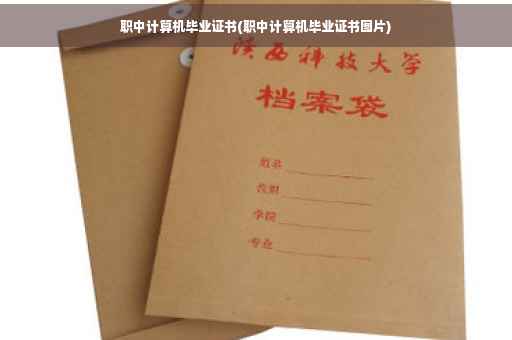 职中计算机毕业证书(职中计算机毕业证书图片)
陕西科技大学
档案袋
姓名
学院
专业